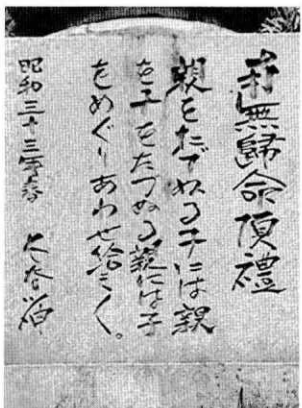 南無歸命頂禮
親をたづぬる子には親
を子をたづぬる親には子
をめぐりあわせ給へ〱。
昭和三十三年春